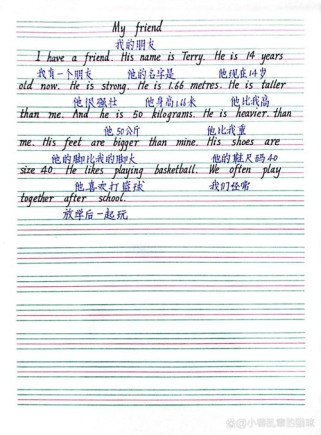 My friend
我的朋友
I have a friend. His name is Terry. He is 14 years
我有一个朋友 他的名字是 他现在14岁
old now. He is strong. He is 1.66 metres. He is taller
他很强壮 他身高1.66米 他比我高
than me. And he is 50 kilograms. He is heavier than
他50公斤 他比我重
me. His feet are bigger than mine. His shoes are
他的脚比我的脚大 他的鞋尺码40
size 40. He likes playing basketball. We often play
他喜欢打篮球 我们经常
together after school.
放学后一起玩